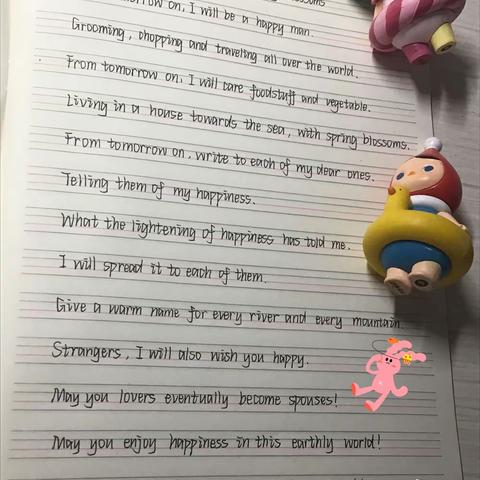 on, I will be a happy man.
Grooming, chopping and traveling all over the world.
From tomorrow on, I will care foodstuff and vegetable.
Living in a house towards the sea, with spring blossoms.
From tomorrow on, write to each of my dear ones.
Telling them of my happiness.
What the lightening of happiness has told me.
I will spread it to each of them.
Give a warm name for every river and every mountain.
Strangers, I will also wish you happy.
May you lovers eventually become spouses!
May you enjoy happiness in this earthly world!